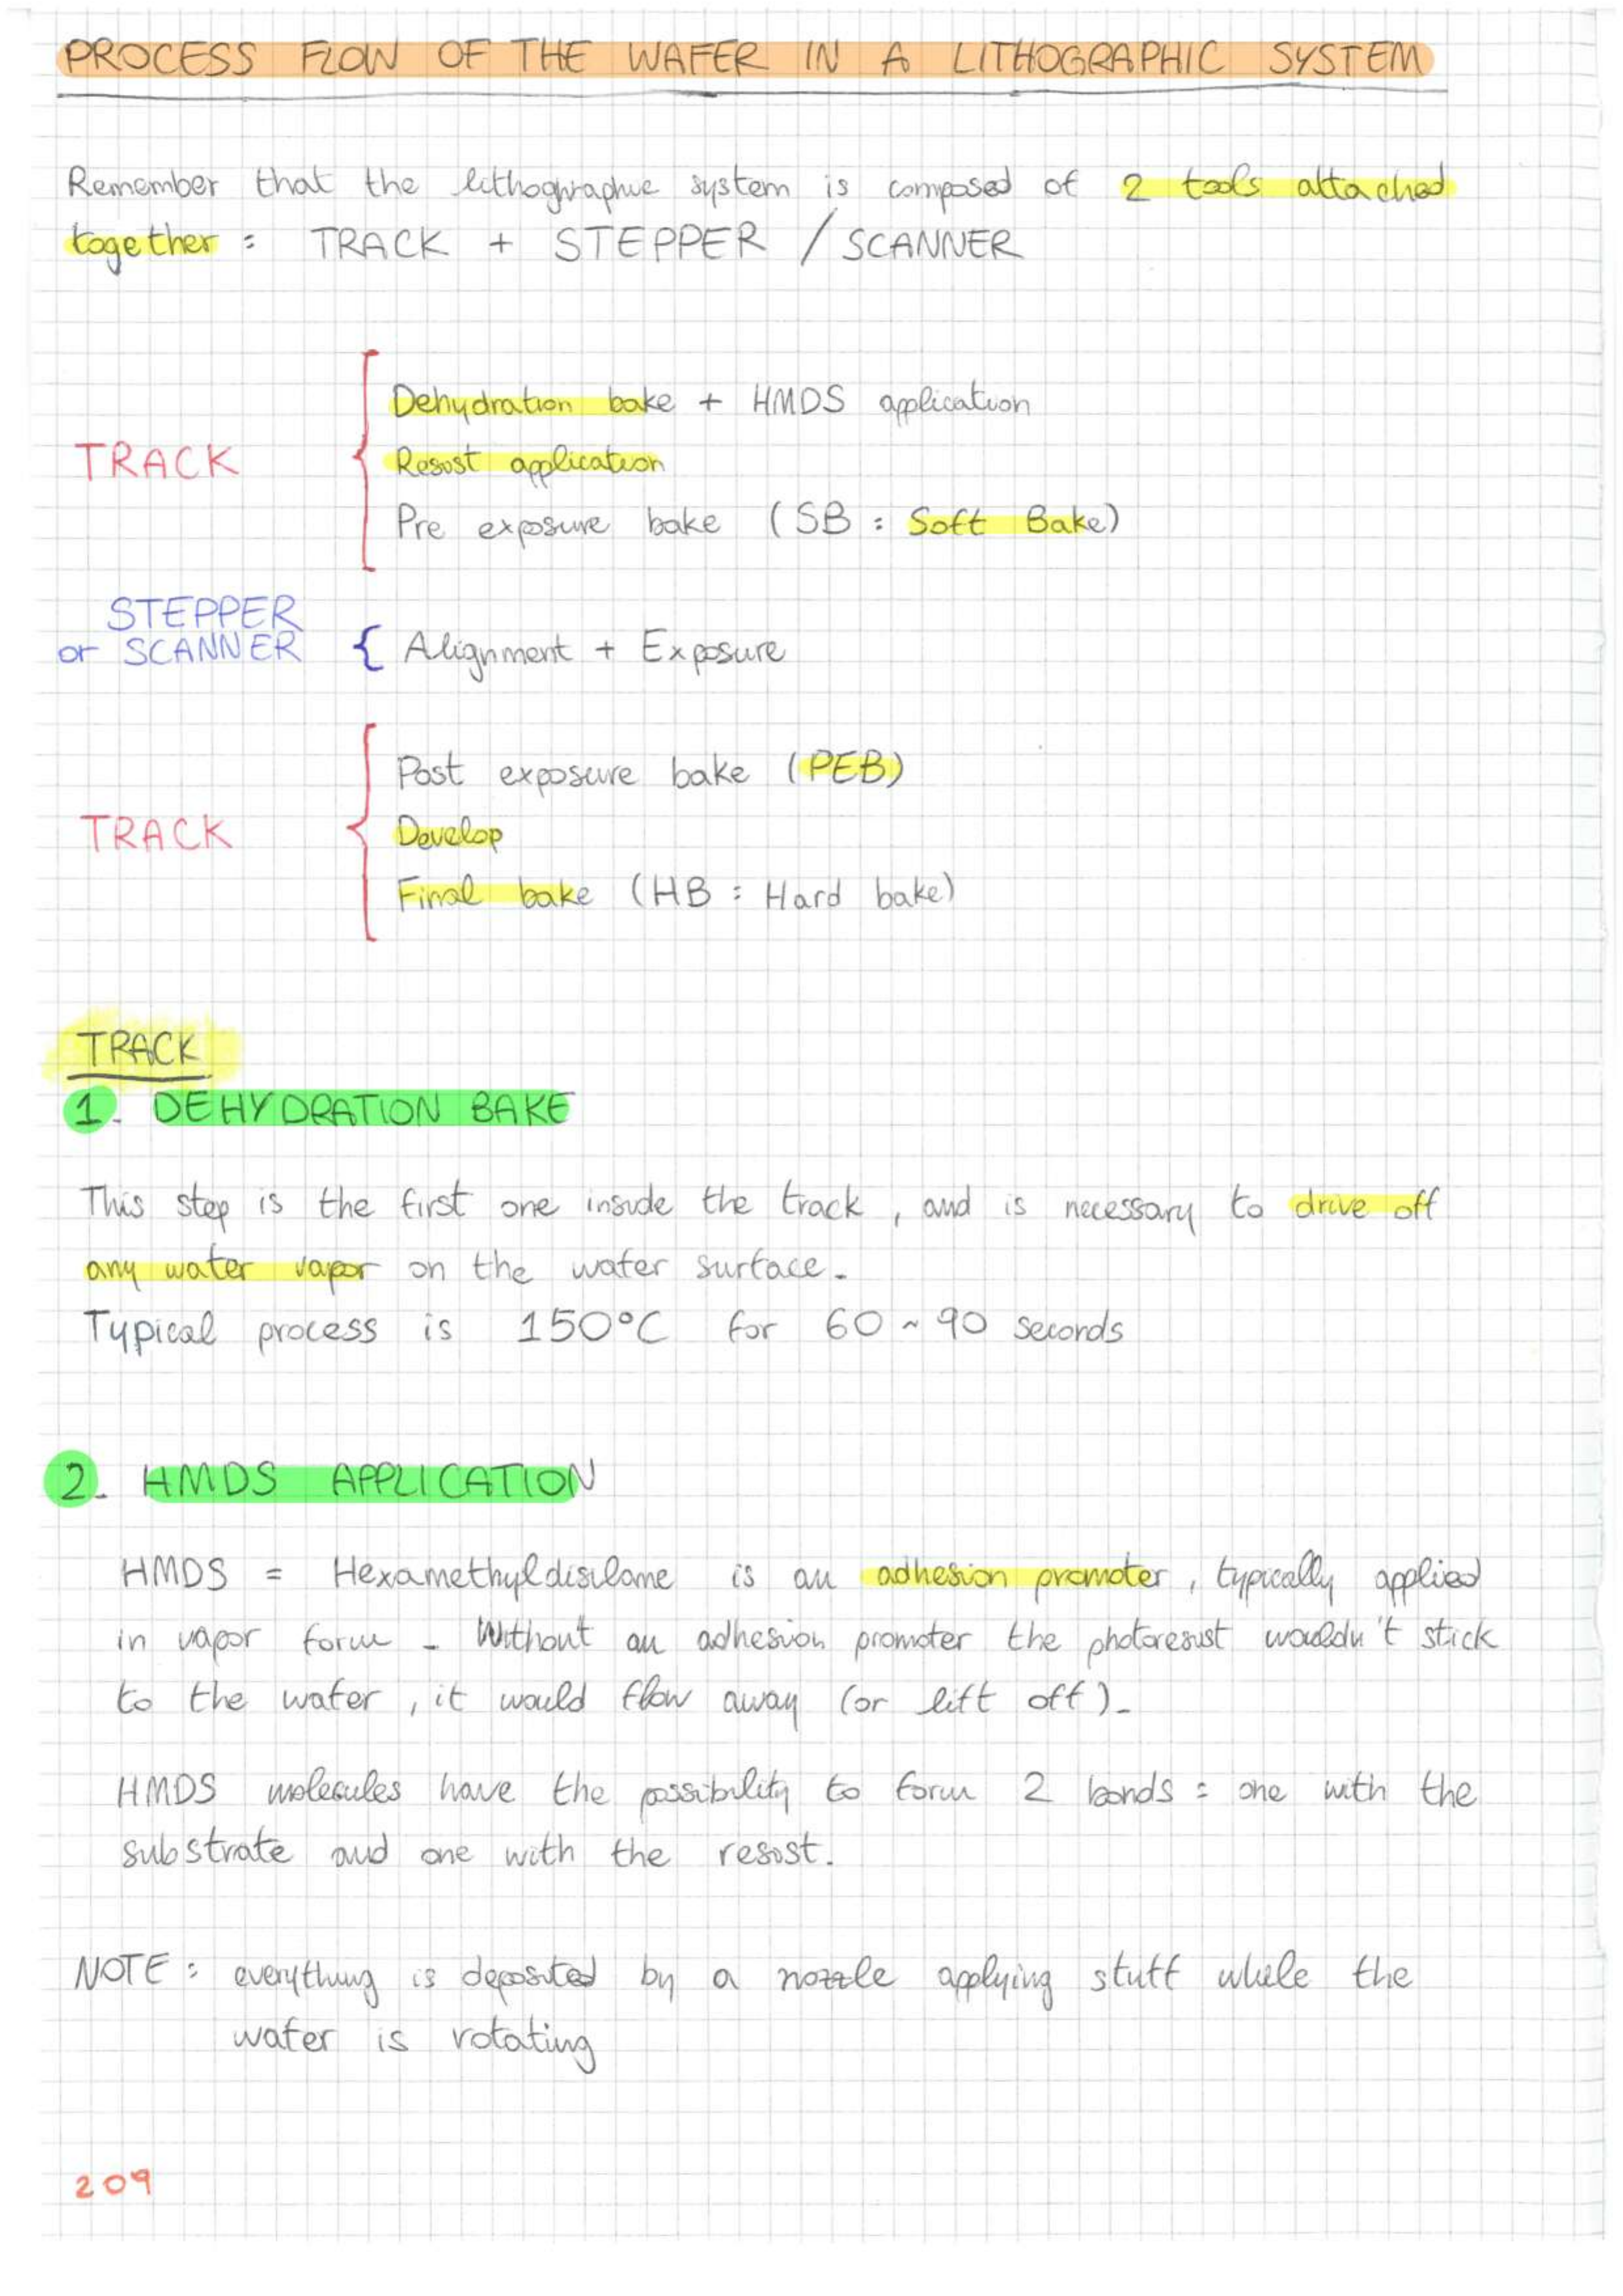 PROCESS FLOW OF THE WAFER IN A LITHOGRAPHIC SYSTEM
Remember that the lithographic system is composed of 2 tools attached
together : TRACK + STEPPER / SCANNER
Dehydration bake + HMDS application
TRACK
Resist application
Pre exposure bake (SB : Soft Bake)
STEPPER
or SCANNER
Alignment + Exposure
Post exposure bake (PEB)
TRACK
Develop
Final bake (HB : Hard bake)
TRACK
1. DEHYDRATION BAKE
This step is the first one inside the track, and is necessary to drive off
any water vapor on the wafer surface.
Typical process is 150°C for 60 ~ 90 seconds
2. HMDS APPLICATION
HMDS = Hexamethyldisilane is an adhesion promoter, typically applied
in vapor form - Without an adhesion promoter the photoresist wouldn't stick
to the wafer, it would flow away (or lift off).
HMDS molecules have the possibility to form 2 bonds : one with the
substrate and one with the resist.
NOTE : everything is deposited by a nozzle applying stuff while the
wafer is rotating
209